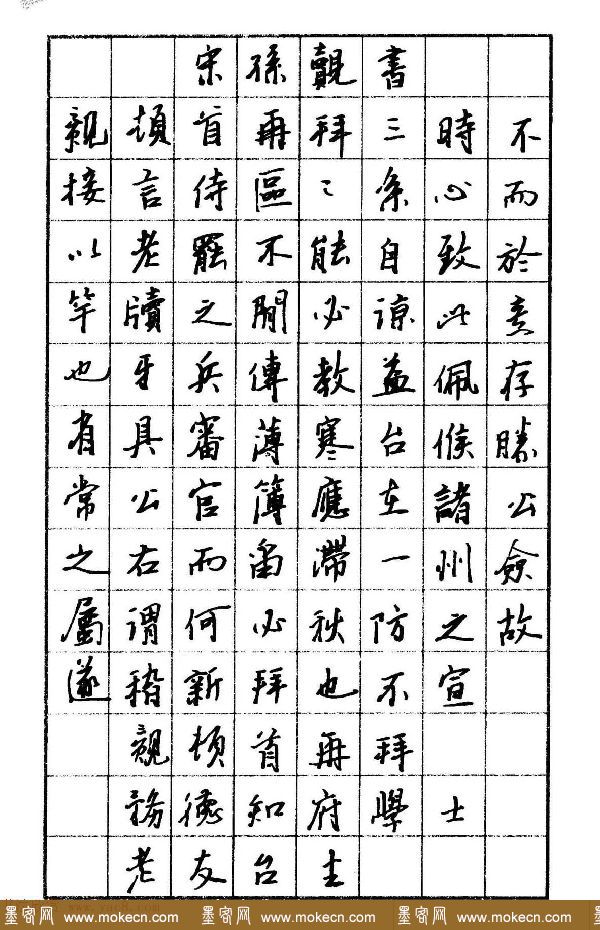 宋孫覿書
覿頓首再拜三時不
接言侍區〻条心而
以老罷不能自致於
竿牘之閒必諒此意
也牙兵傳教益佩存
有具審薄寒台候勝
常公官簿應在諸公
之右而留滯一州僉
屬謂何必秋防之故
遂稽新拜也不宣
覿頓首再拜
務德知府學士
老友台主
墨客网 www.mokecn.com 墨客网 www.mokecn.com 墨客网 www.mokecn.com